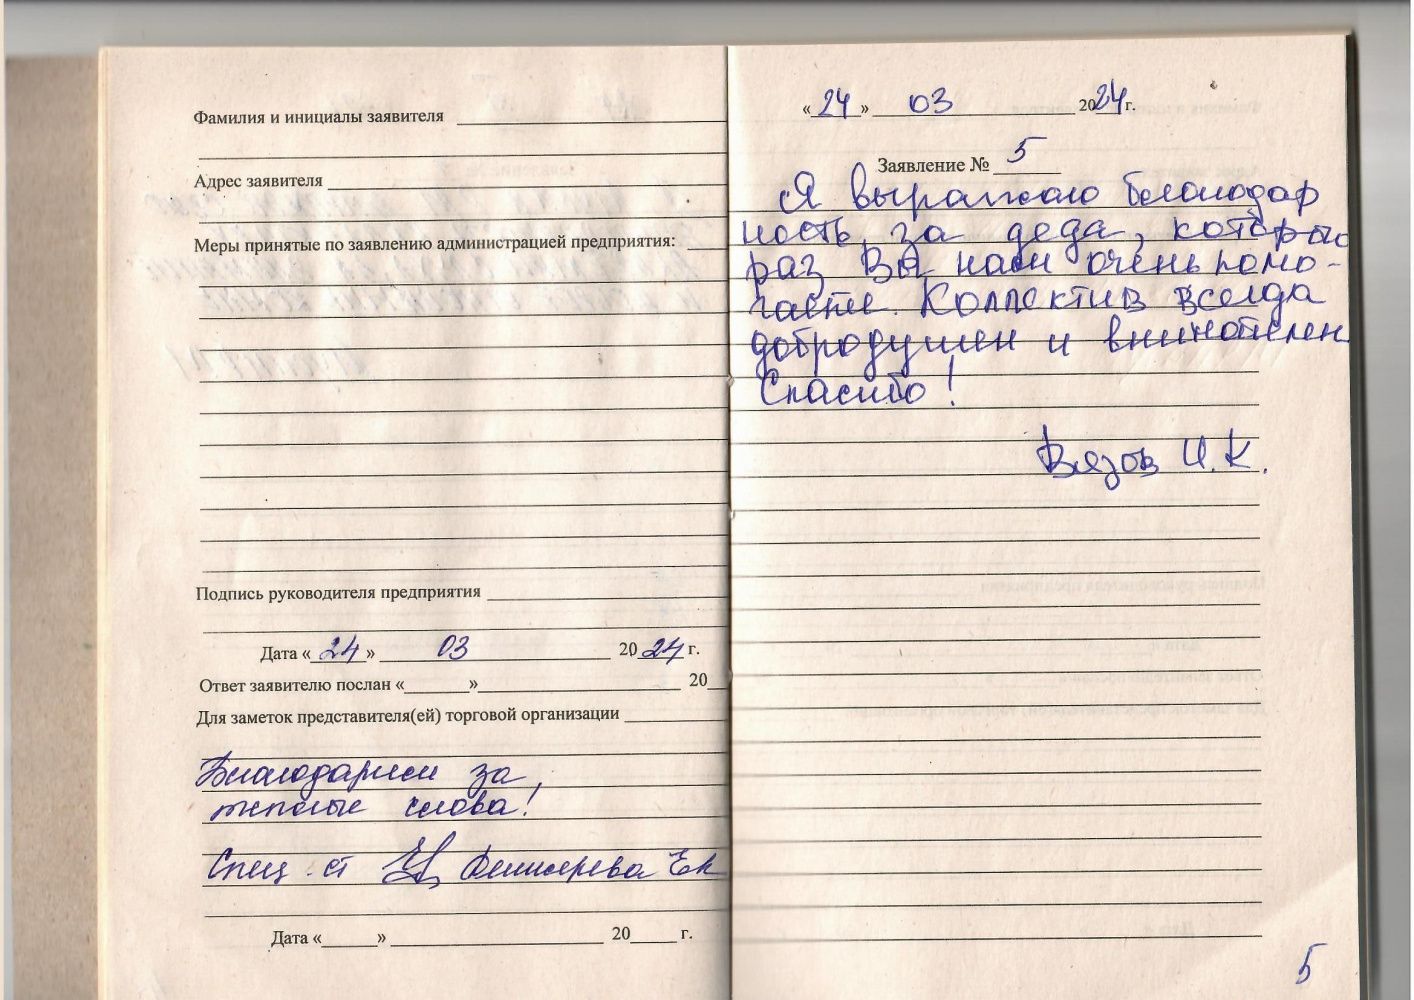 Фамилия и инициалы заявителя
Адрес заявителя
Меры принятые по заявлению администрацией предприятия:
Подпись руководителя предприятия
Дата «24» 03 2024 г.
Ответ заявителю послан «        »                     20
Для заметок представителя(ей) торговой организации
Благодарим за
теплые слова!
Спец. ст
Дата «        »                     20      г.
«24» 03 2024 г.
Заявление № 5
Я выражаю благодар
ность за деда, которы
раз Вы нам очень помо-
гаете. Коллектив всегда
добродушен и внимателен
Спасибо!
Вязов И.К.
5